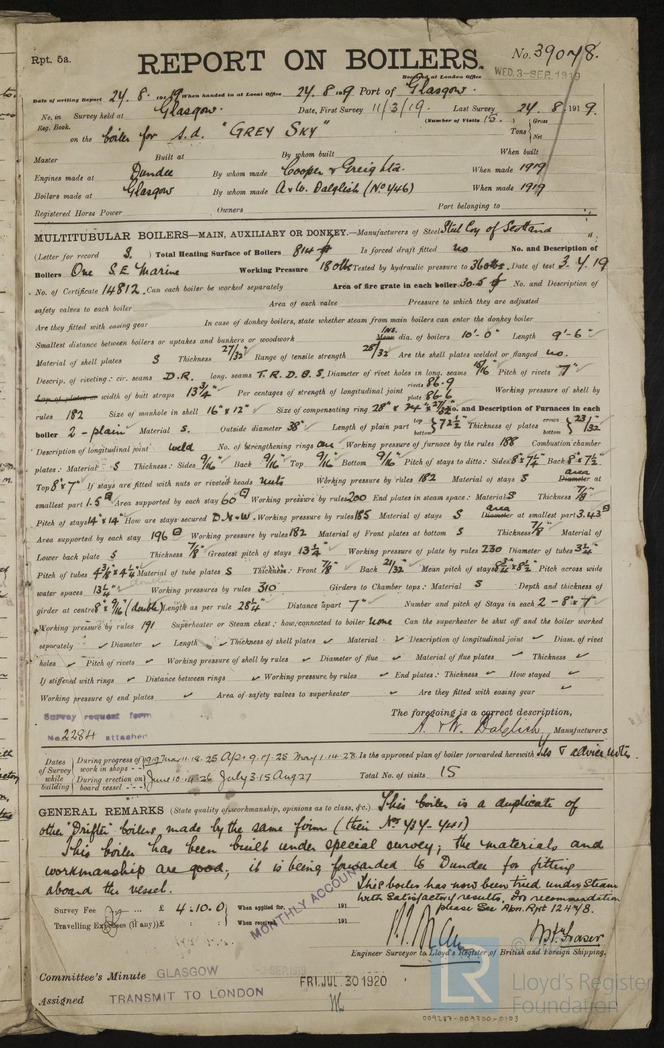 Rpt. 5a.
REPORT ON BOILERS.
No. 39078.
Received at London Office WED. 3-SEP. 1919
Date of writing Report 24.8.1919 When handed in at Local Office 24.8.1919 Port of Glasgow.
No. in Reg. Book. Survey held at Glasgow. Date, First Survey 11/3/19. Last Survey 24.8.1919.
on the boiler for s.d. "GREY SKY" (Number of Visits 15.) Tons { Gross Net
Master Built at By whom built When built
Engines made at Dundee By whom made Cooper & Greig Ltd. When made 1919
Boilers made at Glasgow By whom made A & W. Dalglish (No 446) When made 1919
Registered Horse Power Owners Port belonging to
MULTITUBULAR BOILERS—MAIN, AUXILIARY OR DONKEY.—Manufacturers of Steel Steel Coy of Scotland
(Letter for record S.) Total Heating Surface of Boilers 814 Is forced draft fitted no No. and Description of
Boilers One S.E. Marine Working Pressure 180 lbs Tested by hydraulic pressure to 360 lbs. Date of test 3.4.19
No. of Certificate 14812. Can each boiler be worked separately Area of fire grate in each boiler 30.5 No. and Description of
safety valves to each boiler Area of each valve Pressure to which they are adjusted
Are they fitted with easing gear In case of donkey boilers, state whether steam from main boilers can enter the donkey boiler
Smallest distance between boilers or uptakes and bunkers or woodwork Ins. Mean dia. of boilers 10'-0" Length 9'-6"
Material of shell plates S Thickness 27/32" Range of tensile strength 28/32 Are the shell plates welded or flanged no.
Descrip. of riveting: cir. seams D.R. long. seams T.R.D.B.S. Diameter of rivet holes in long. seams 15/16" Pitch of rivets 7"
Lap of plates or width of butt straps 13 3/4" Per centages of strength of longitudinal joint rivets 86.9 plate 86.6 Working pressure of shell by
rules 182 Size of manhole in shell 16" x 12" Size of compensating ring No. and Description of Furnaces in each
boiler 2 - plain Material S. Outside diameter 38" Length of plain part top bottom } 72 1/2" Thickness of plates crown bottom } 23/32"
Description of longitudinal joint weld No. of strengthening rings one Working pressure of furnace by the rules 188 Combustion chamber
plates: Material S Thickness: Sides 9/16" Back 9/16" Top 9/16" Bottom 9/16" Pitch of stays to ditto: Sides 8" x 7 1/4" Back 8" x 7 1/2"
Top 8" x 7" If stays are fitted with nuts or riveted heads nuts Working pressure by rules 182 Material of stays S area Diameter at
smallest part 1.5 Area supported by each stay 60 Working pressure by rules 200 End plates in steam space: Material S Thickness 7/8"
Pitch of stays 14" x 14" How are stays secured D.N.W. Working pressure by rules 185 Material of stays S area Diameter at smallest part 3.43
Area supported by each stay 196 Working pressure by rules 182 Material of Front plates at bottom S Thickness 7/8" Material of
Lower back plate S Thickness 7/8" Greatest pitch of stays 13 1/2" Working pressure of plate by rules 230 Diameter of tubes 3 1/4"
Pitch of tubes 4 3/8" x 4 1/4" Material of tube plates S Thickness: Front 7/8" Back 21/32" Mean pitch of stays Pitch across wide
water spaces 13 1/4" Working pressures by rules 310 Girders to Chamber tops: Material S Depth and thickness of
girder at centre 8" x 9/16" (double) Length as per rule 28 1/4" Distance apart 7" Number and pitch of Stays in each 2 - 8" x 7"
Working pressure by rules 191 Superheater or Steam chest; how connected to boiler none Can the superheater be shut off and the boiler worked
separately Diameter Length Thickness of shell plates Material Description of longitudinal joint Diam. of rivet
holes Pitch of rivets Working pressure of shell by rules Diameter of flue Material of flue plates Thickness
If stiffened with rings Distance between rings Working pressure by rules End plates: Thickness How stayed
Working pressure of end plates Area of safety valves to superheater Are they fitted with easing gear
Survey request form
No. 2284 attached
The foregoing is a correct description,
A. & W. Dalglish, Manufacturers
Dates of Survey while building { During progress of work in shops - - 1919 Mar 11.18.25 Apr 9.17.25 May 1.14.28. Is the approved plan of boiler forwarded herewith
During erection on board vessel - - - June 10.14.26 July 3.15 Aug 27 Total No. of visits 15
GENERAL REMARKS (State quality of workmanship, opinions as to class, &c.) This boiler is a duplicate of
other "Drifter" boilers made by the same firm (their Nos 434-441)
This boiler has been built under special survey; the materials and
workmanship are good; it is being forwarded to Dundee for fitting
aboard the vessel.
This boiler has now been tried under steam
with satisfactory results, for recommendation
please see Abn. Rpt 12478.
Survey Fee ... £ 4.10.0 When applied for, 191
Travelling Expenses (if any) £ When received, 191
MONTHLY ACCOUNT
Engineer Surveyor to Lloyd's Register of British and Foreign Shipping.
Committee's Minute GLASGOW
FRI. JUL. 30 1920
Assigned TRANSMIT TO LONDON
© Lloyd's Register Foundation
009287-009300-0103